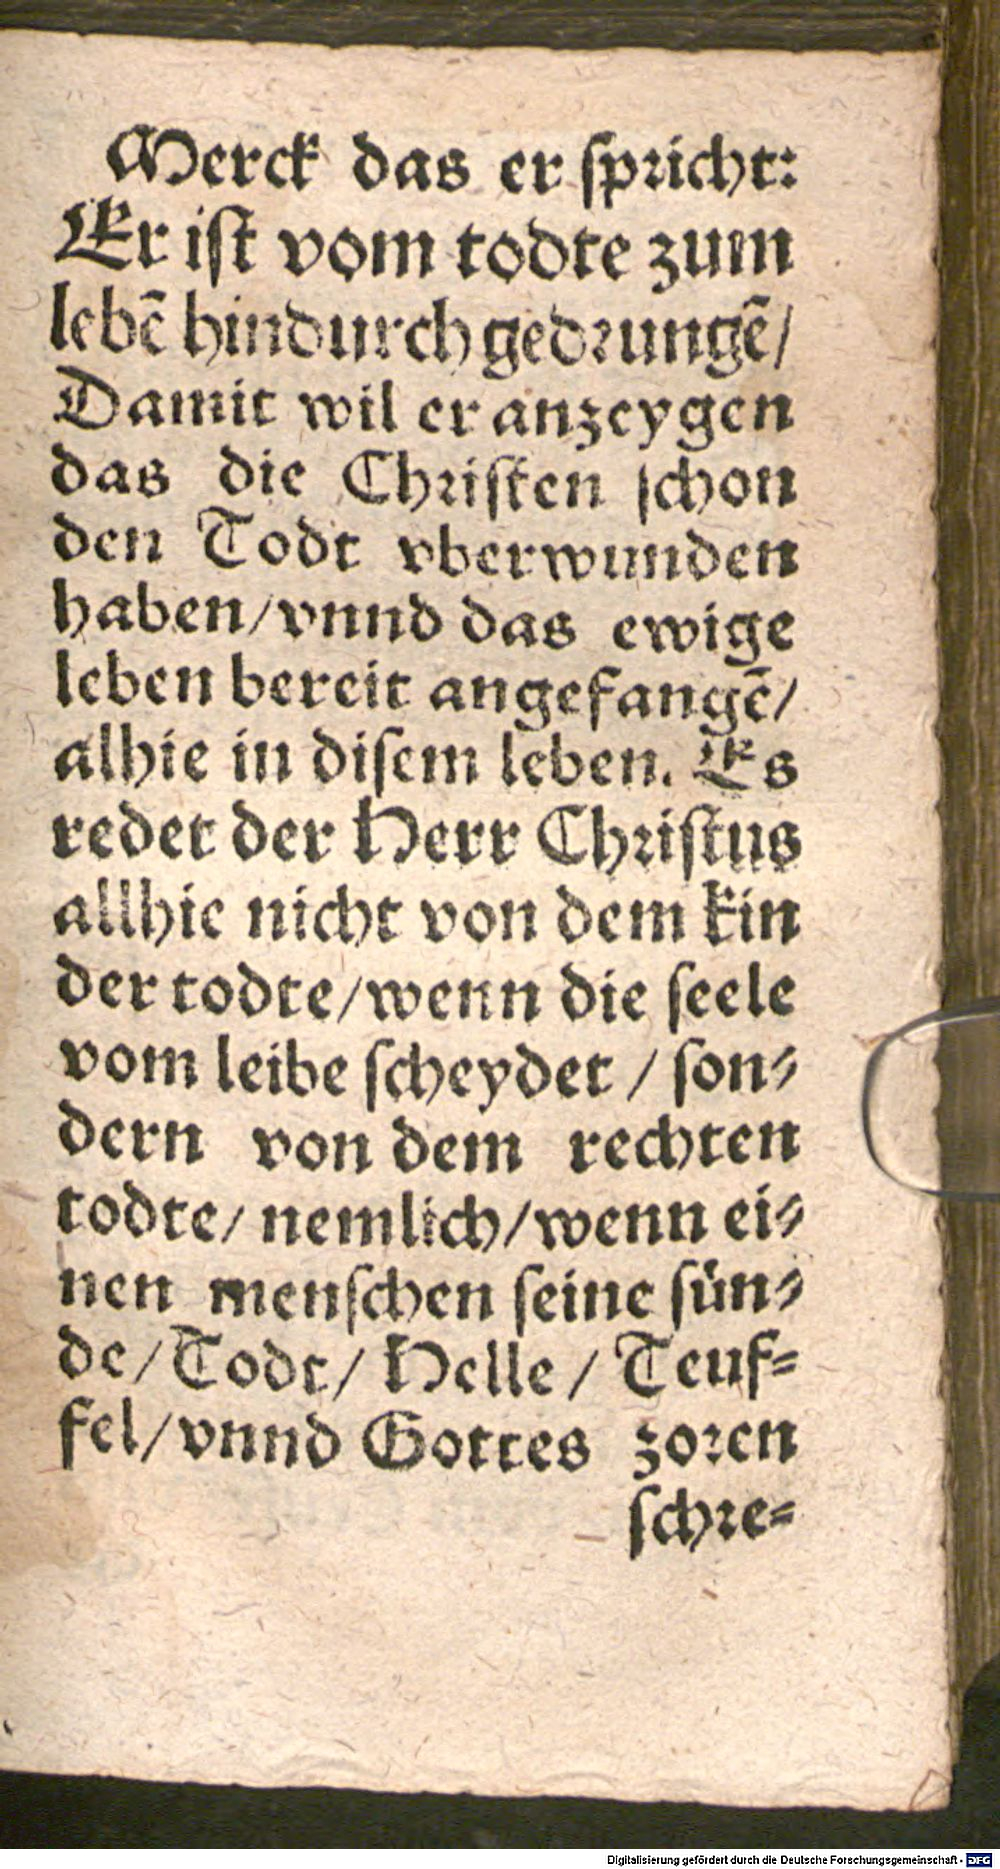 Merck das er ſpricht:
Er iſt vom todte zum
lebē hindurch gedrungē/
Damit wil er anzeygen
das die Chriſten ſchon
den Todt vberwunden
haben/vnnd das ewige
leben bereit angefangē/
alhie in diſem leben. Es
redet der Herr Chriſtus
allhie nicht von dem kin
der todte/wenn die ſeele
vom leibe ſcheydet / ſon⸗
dern von dem rechten
todte/ nemlich/wenn ei⸗
nen menſchen ſeine ſün⸗
de/Todt/ Helle / Teuf⸗
fel/vnnd Gottes zoren
ſchre⸗
Digitalisierung gefördert durch die Deutsche Forschungsgemeinschaft - DFG